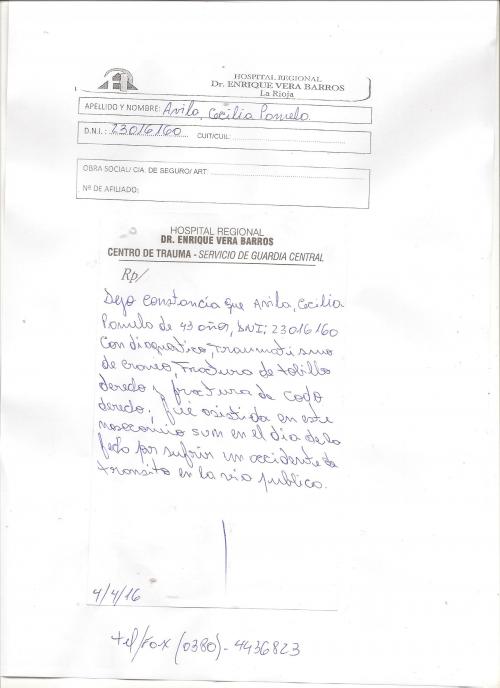 HOSPITAL REGIONAL
Dr. ENRIQUE VERA BARROS
La Rioja
APELLIDO Y NOMBRE: Avila, Cecilia Pamela
D.N.I.: 23016160 CUIT/CUIL:
OBRA SOCIAL/ CIA. DE SEGURO/ ART:
Nº DE AFILIADO:
HOSPITAL REGIONAL
DR. ENRIQUE VERA BARROS
CENTRO DE TRAUMA - SERVICIO DE GUARDIA CENTRAL
Rp/
Dejo constancia que Avila, Cecilia
Pamela de 43 años, DNI: 23016160
Con diagnostico, Traumatismo
de craneo, Fractura de tobillo
derecho y fractura de codo
derecho, fue asistida en este
nosocomio en el dia de la
fecha por sufrir un accidente de
transito en la via publica.
4/4/16
tel/Fax (0380)-4436823